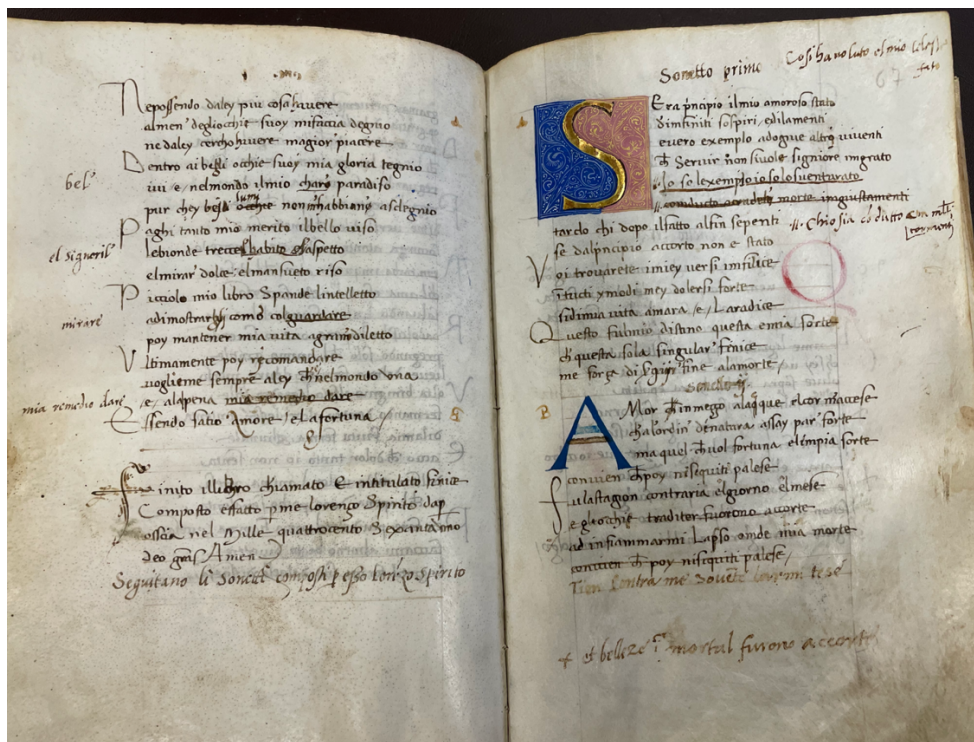 Nepossendo daley piu cosa havere
almen degliocchie suoy mifaccia degnio
ne daley cercho havere magior piacere
Dentro ai begli occhie suoy mia gloria tegnio
bel
ivi e nelmondo ilmio charo paradiso
pur chey begli occhie non mhabbiano asdegnio
lumi
Paghi tanto mio merito ilbello viso
el signoril
lebionde trecce habito
elmirar dolce elmansueto riso
Picciolo mio libro Spande lintelletto
mirare
adimostrargli como colguardare
poy mantener mia vita agram diletto
Ultimamente poy recomandare
voglieme sempre aley ch nelmondo una
mia remedio dare
/e/ alapena mia remedio dare
Essendo satio Amore /e lafortuna
Finito illibro chiamato E intitulato fenice
Composto effatto pme lorenço Spirito dap
ossia nel Mille quattrocento Sexanta uno
deo grās Amen
Seguitano li Sonetti composti p esso Lorenzo Spirito
Sonetto primo
Cosi ha voluto el mio celest
fato
67
A
SEra pncipio ilmio amoroso stato
Dinfiniti sospiri, edilamenti
evero exemplo adogne altro viventi
ch Servir non si vole signiore ingrato
Io so lexemplo io solo sventurato
conducto acrudele morte ingiustamenti
tardo chi dopo ilfatto alfin sepenti
Chio sia conducto
se dalpncipio accorto non e stato
Voi trovarete imiey versi infilice
Q
itucti y modi mey dolersi forte
sidimia vita amara /e/ Laradice
Questo fulmio distino questa emia sorte
chquesta sola singular fenice
me força di seguir fine alamorte
sonetto ij
B
AMor ch inmeggo alaqque elcor maccese
chalordin denatura assay par forte
ma quel ch vol fortuna elimpia sorte
convien ch poy nisequiti palese
fu lastagion contraria elgiorno elmese
e gliocchie traditor fuorono accorte
ad infiammarmi Lasso onde mia morte
conuien ch poy nisequiti palese
Tien contra me sovente larmi tese
+ et belleze mortal furono accorte